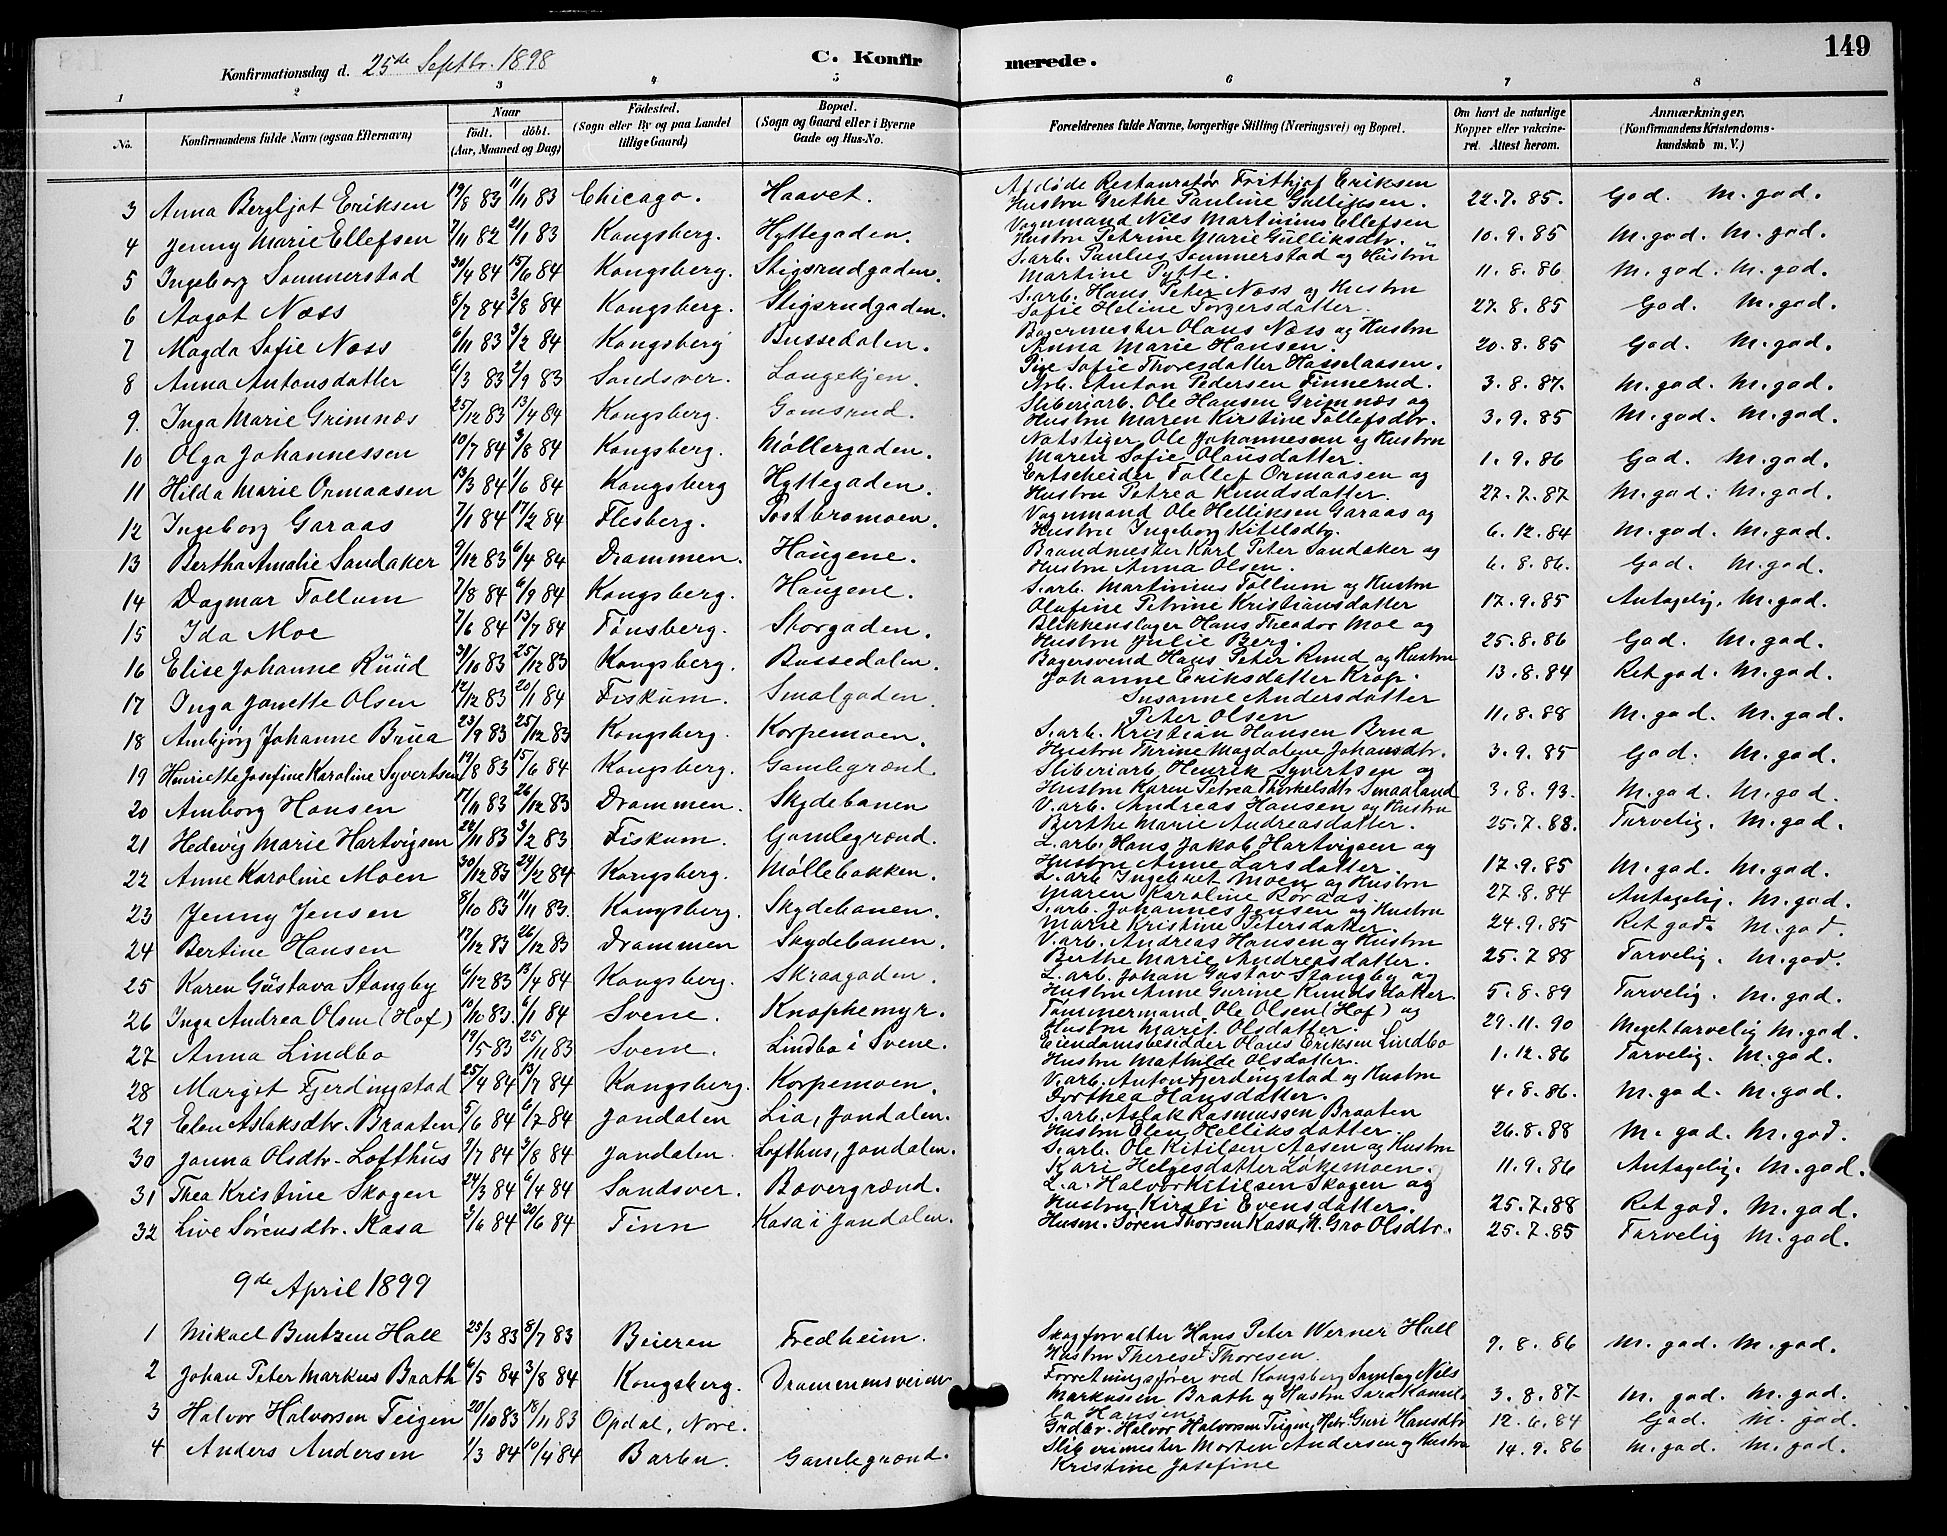 149
Konfirmationsdag d. 25de Septbr. 1898 C. Konfir merede.
1 2 3 4 5 6 7 8
No. Konfirmandens fulde Navn (ogsaa Efternavn) Naar født. døbt. (Aar, Maaned og Dag) Fødested. (Sogn eller By og paa Landet tillige Gaard) Bopæl. (Sogn og Gaard eller i Byerne Gade og Hus-No. Forældrenes fulde Navne, borgerlige Stilling (Næringsvei) og Bopæl. Om havt de naturlige Kopper eller vakcineret. Attest herom. Anmærkninger. (Konfirmandens Kristendomskundskab m. V.)
3 Anna Bergljot Eriksen 19/8 83 11/11 83 Chicago. Haavet. Afdøde Restauratør Frithjof Eriksen Hustru Grethe Pauline Gulliksen. 22.7.85. God. M.god.
4 Jenny Marie Ellefsen 7/11 82 21/1 83 Kongsberg. Hyttegaden. Vognmand Nils Martinius Ellefsen Hustru Petrine Marie Gulliksdtr. 10.9.85 M.god. M.god.
5 Ingeborg Sommerstad 30/4 84 15/6 84 Kongsberg. Stigsrudgaden. S.arb. Paulus Sommerstad og Hustru Martine Pytte. 11.8.86 M.god. M.god.
6 Aagot Næss 8/7 84 3/8 84 Kongsberg. Stigsrudgaden. S.arb. Hans Peter Næss og Hustru Sofie Heline Torgersdatter. 27.8.85 God. M.god.
7 Magda Sofie Næss 6/11 83 3/2 84 Kongsberg Bussedalen. Bagermester Olaus Næss og Hustru Anna Marie Hansen. 20.8.85 God. M.god.
8 Anna Antonsdatter 6/3 83 2/9 83 Sandsver. Langekjen. Pige Sofie Thoresdatter Hasselaasen. Arb. Anton Pedersen Finnerud. 3.8.87. M.god. M.god.
9. Inga Marie Grimnæs 25/12 83 13/4 84 Kongsberg. Gamsrud. Sliberiarb. Ole Hansen Grimnæs og Hustru Maren Kirstine Tollefsdtr. 3.9.85 M.god. M.god.
10 Olga Johannessen 10/7 84 3/8 84 Kongsberg. Møllergaden. Natstiger Ole Johannesen og Hustru Maren Sofie Olausdatter. 1.9.86 God. M.god.
11 Hilda Marie Ormaasen 13/3 84 1/6 84 Kongsberg Hyttegaden. Ertscheider Tollef Ormaasen og Hustru Petrea Knudsdatter. 27.7.87 M.god. M.god.
12 Ingeborg Garaas 7/1 84 17/2 84 Flesberg. Postbromoen. Vognmand Ole Helliksen Garaas og Hustru Ingeborg Kitelsdtr. 6.12.84 M.god. M.god.
13 Bertha Amalie Sandaker 9/12 83 6/4 84 Drammen. Haugene. Brandmester Karl Peter Sandaker og Hustru Anna Olsen. 6.8.86. God. M.god.
14 Dagmar Tollum 7/8 84 6/9 84 Kongsberg. Haugene. S.arb. Martinius Tollum og Hustru Olufine Petrine Kristiansdatter 17.9.85 Antagelig. M.god.
15 Ida Moe 7/6 84 13/7 84 Tønsberg. Storgaden. Blikkenslager Hans Theodor Moe og Hustru Julie Berg. 25.8.86 God. M.god.
16 Elise Johanne Ruud 31/10 83 25/12 83 Kongsberg. Bussedalen. Bagersvend Hans Peter Ruud og Hustru Johanne Eriksdatter Krop. 13.8.84 Ret god. M.god.
17 Inga Janette Olsen 12/12 83 20/1 84 Fiskum. Smalgaden. Susanne Andersdatter Peter Olsen 11.8.88 M.god. M.god.
18 Ambjørg Johanne Brua 23/9 83 25/12 83 Kongsberg. Korpemoen. S.arb. Kristian Hansen Brua Hustru Thrine Magdalene Johansdtr. 3.9.85 God. M.god.
19 Henriette Josefine Karoline Syvertsen 19/8 83 15/6 84 Kongsberg. Gamlegrænd. Sliberiarb. Henrik Syvertsen og Hustru Karen Petrea Thorkelsdtr. Smaaland 3.8.93. M.god. M.god.
20 Amborg Hansen 17/11 83 26/12 83 Drammen. Skydebanen V.arb. Andreas Hansen og Hustru Berthe Marie Andreasdatter. 25.7.88. Tarvelig. M.god.
21 Hedevig Marie Hartvigsen 22/11 83 3/2 83 Fiskum. Gamlegrænd. L.arb. Hans Jakob Hartvigsen og Hustru Anne Larsdatter. 17.9.85 M.god. M.god.
22 Anne Karoline Moen 30/12 83 24/2 84 Kongsberg. Møllebakken. L.arb. Ingebret Moen og Hustru Maren Karoline Roraas. 27.8.84 Antagelig. M.god.
23 Jenny Jensen 8/10 83 11/11 83. Kongsberg. Skydebanen. S.arb. Johannes Jensen og Hustru Marie Kristine Petersdatter. 24.9.85 Ret god. M.god.
24 Bertine Hansen 17/12 83 26/12 83 Drammen Skydebanen. V.arb. Andreas Hansen og Hustru Berthe Marie Andreasdatter. 25.7 88 Tarvelig. M.god.
25 Karen Gustava Stangby 6/12 83 13/4 84 Kongsberg. Skraagaden. L.arb. Johan Gustav Stangby og Hustru Anne Gurine Knudsdatter 5.8.89 Tarvelig. M.god.
26 Inga Andrea Olsen (Hof) 10/10 83. 6/1 84 Svene. Knophemyr. Tømmermand Ole Olsen (Hof) og Hustru Marit Olsdatter. 29.11.90 Meget tarvelig M.god.
27 Anna Lindbo 19/5 83 25/11 83 Svene. Lindbo i Svene. Eiendomsbesidder Hans Eriksen Lindbo Hustru Mathilde Olsdatter. 1.12.86 Tarvelig. M.god.
28 Margit Fjerdingstad 25/4 84 13/7 84 Kongsberg. Korpemoen. V.arb. Anton Fjerdingstad og Hustru Dorthea Hansdatter. 4.8.86. M.god. M.god.
29 Elen Aslaksdtr. Braaten 5/6 84 6/7 84 Jondalen Lia, Jondalen. S.arb. Aslak Rasmussen Braaten Hustru Olea Helliksdatter. 26.8.88 M.god. M.god.
30 Janna Olsdtr. Lofthus 7/7 84 3/8 84 Jondalen. Lofthus, Jondalen. S.arb. Ole Kitilsen Aasen og Hustru Kari Helgesdatter Løkemoen. 11.9.86 Antagelig. M.god.
31 Thea Kristine Skogen 24/3 84 6/4 84 Sandsver. Bævergrænd. L.a. Halvor Kitilsen Skogen og Hustru Kirsti Evensdatter. 25.7.88 Ret god. M.god.
32 Live Sørensdtr. Kasa 2/6 84 20/6 84 Tinn Kasa i Jondalen. Husm. Søren Thorsen Kasa, H. Gro Olsdtr. 25.7.85 Tarvelig M.god.
9de April 1899
1 Mikael Bentzen Hall 25/3 83 8/7 83 Beieren Fredheim. Skogforvalter Hans Peter Werner Hall Hustru Therese Thoresen. 9.8.86 M.god. M.god.
2 Johan Peter Markus Brath 6/5 84 3/8 84 Kongsberg. Drammensveien Forretningsfører ved Kongsberg Samlag Nils Markussen Brath og Hustru Sara Hansen 3.8.87 M.god. M.god.
3 Halvor Halvorsen Teigen 20/10 83 18/11 83 Opdal, Nore. Grdbr. Halvor Halvorsen Teigen, Hstr. Guri Hansdtr 12.6.84 God. M.god.
4 Anders Andersen 1/3 84 10/4 84 Barbu. Gamlegrænd. Slibermester Morten Andersen og Hustru Kristine Josefine 14.9.86 M.god. M.god.